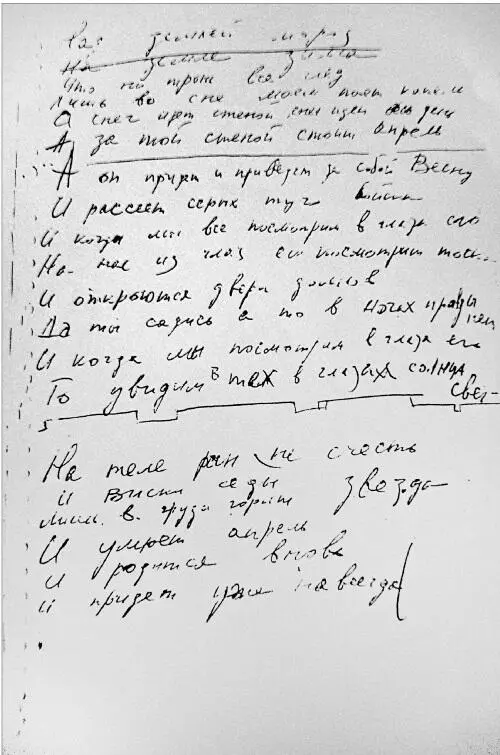 Над землей мороз
На земле зима
Что ни тронь все лед
Лишь во сне моем поет капель
А снег идет стеной снег идет весь день
А за той стеной стоит апрель
А он придет и приведет за собой Весну
И рассеет серых туч войска
И когда мы все посмотрим в глаза его
На нас из глаз его посмотрит тоска
И откроются двери домов
Да ты садись а то в ногах правды нет
И когда мы посмотрим в глаза его
То увидим в тех в глазах солнца
свет
На теле ран не счесть
И виски седы
лишь в груди горит звезда
И умрет апрель
и родится вновь
и придет уже навсегда